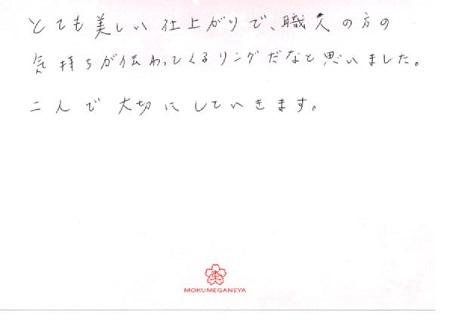 とても美しい仕上がりで、職人の方の
気持ちが伝わってくるリングだなと思いました。
二人で大切にしていきます。
MOKUMEGANEYA